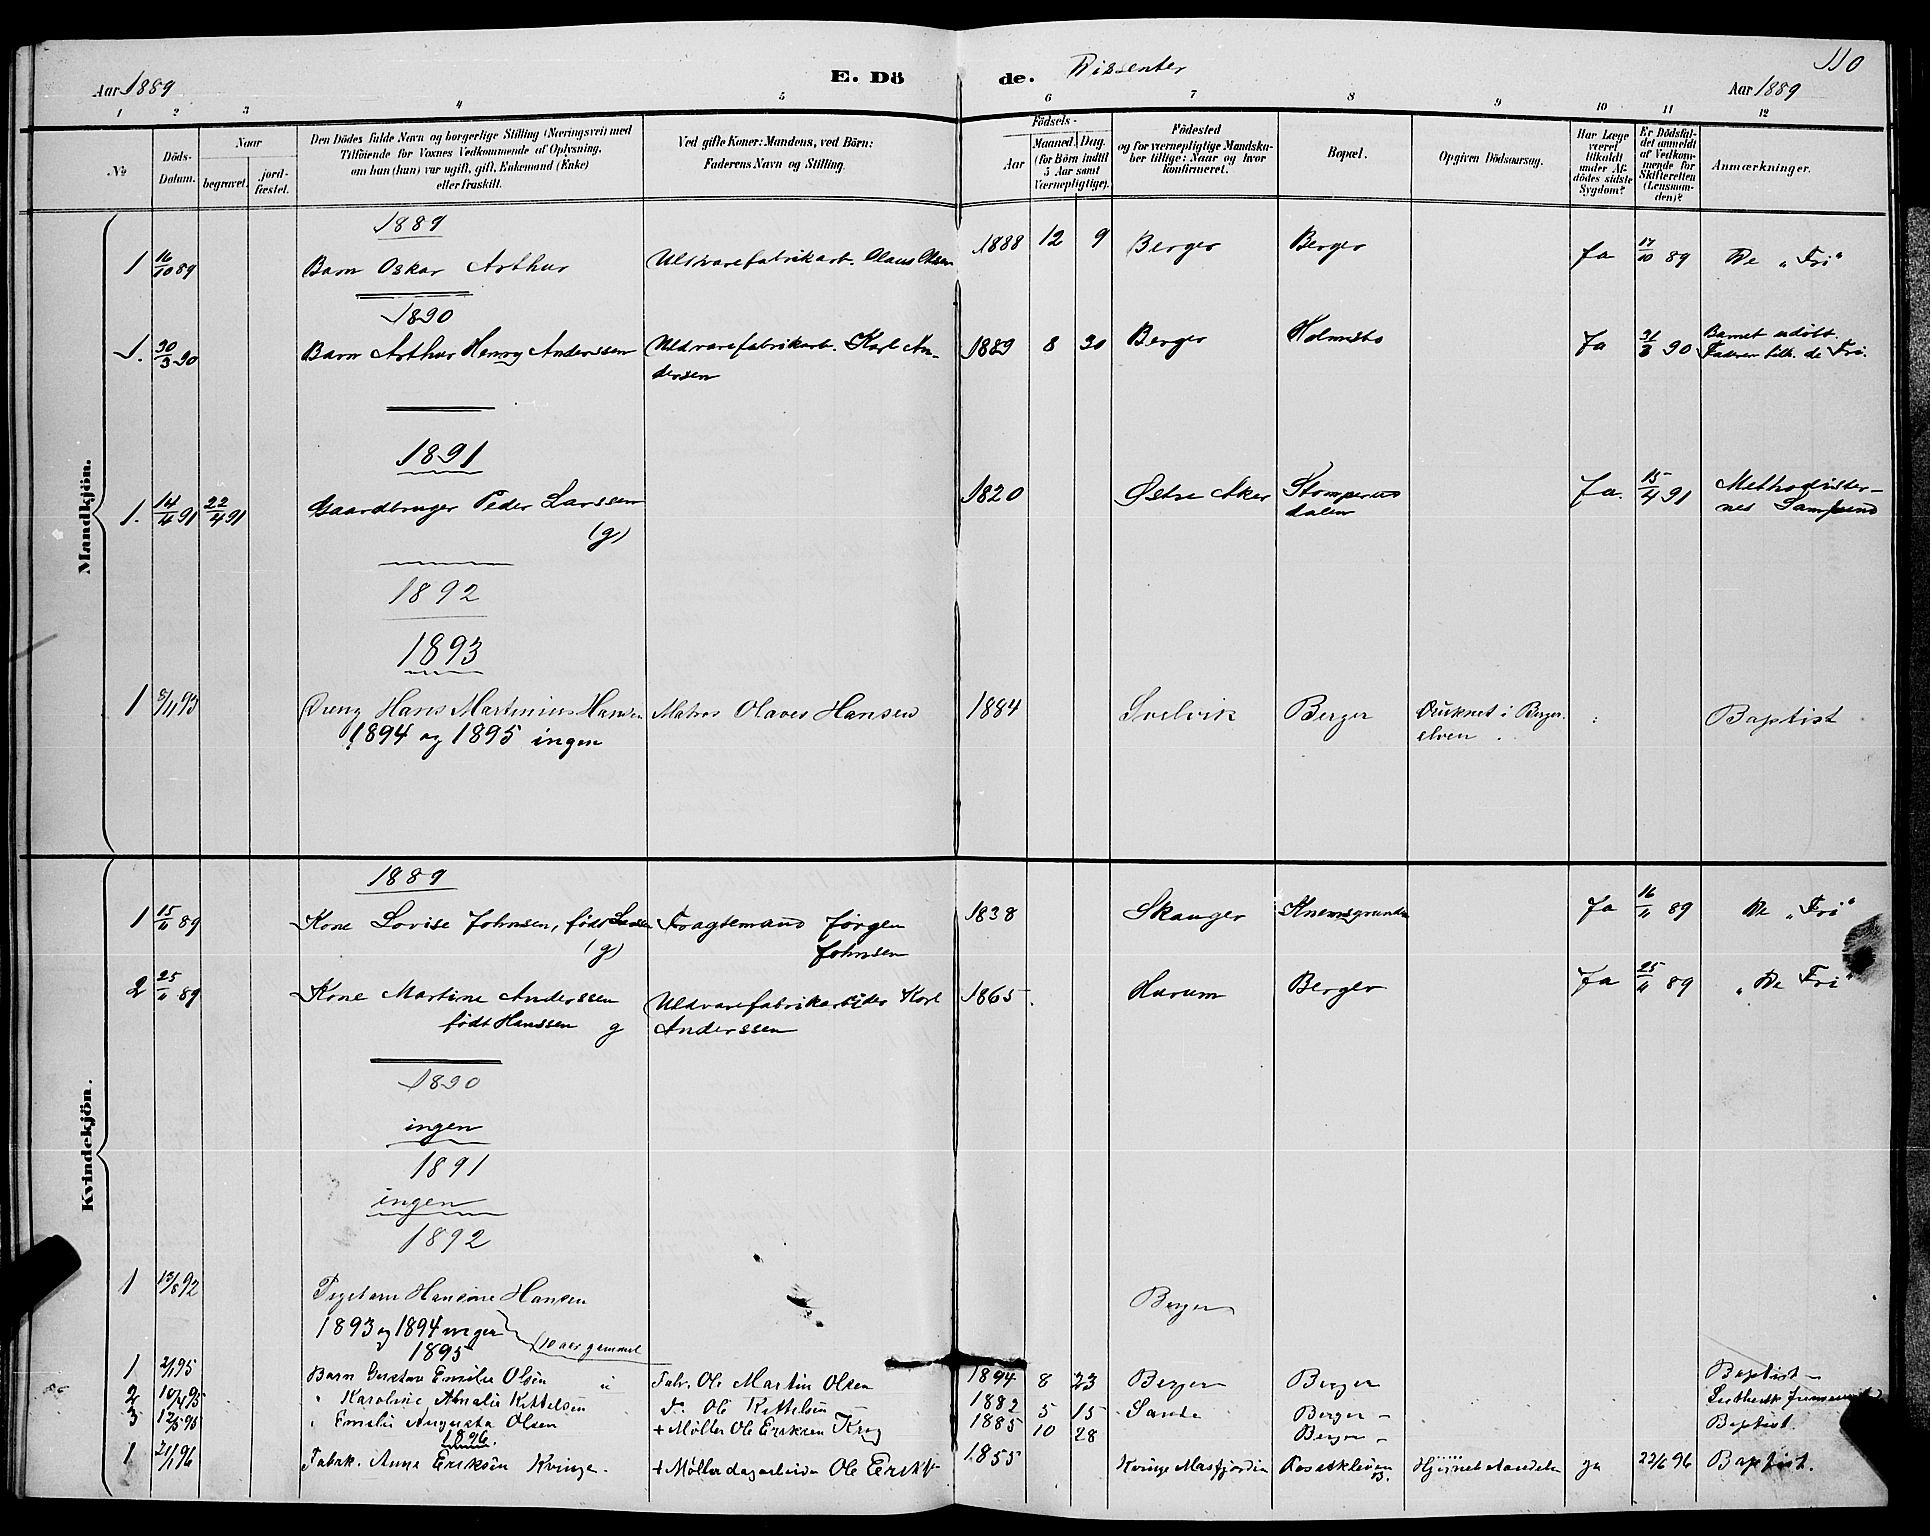 110
Aar 1889
E. Dö
de. Dissenter
Aar 1889
1 2 3 4 5 6 7 8 9 10 11 12
№
Döds-
Datum.
Naar
begravet.
jord-
fæstet.
Den Dödes fulde Navn og borgerlige Stilling (Næringsvei) med
Tilföiende for Voxnes Vedkommende af Oplysning,
om han (hun) var ugift, gift, Enkemand (Enke)
eller fraskilt.
Ved gifte Koner: Mandens, ved Börn:
Faderens Navn og Stilling.
Födsels-
Aar
Maaned. Dag.
(for Börn indtil
5 Aar samt
Værnepligtige).
Födested
og for værnepligtige Mandska-
ber tillige: Naar og hvor
konfirmeret.
Bopæl.
Opgiven Dödsaarsag.
Har Læge
været
tilkaldt
under Af-
dödes sidste
Sygdom?
Er Dödsfal-
det anmeldt
af Vedkom-
mende for
Skifteretten
(Lensman-
den)?
Anmærkninger.
Mandkjön.
1889
1 16/10 89 Barn Oskar Arthur Uldvarefabrikarb. Olaus Olsen 1888 12 9 Berger Berger Ja 17/10 89 De "Fri"
1890
1. 30/3 90 Barn Arthur Henry Anderssen Uldvarefabrikarb. Karl An- 1889 8 30 Berger Holmsbo Ja 31/3 90 Barnet udöbt.
dersen Faderen tilh. de Fri.
1891
1. 14/4 91 22/4 91 Gaardbruger Peder Larssen 1820 Østre Aker Stomperud Ja. 15/4 91 Methodister-
(g) dalen nes Samfund
1892
1893
1 8/11 93 Dreng Hans Martinius Hansen Matros Olaves Hansen 1884 Svelvik Berger Druknet i Berger Baptist
1894 og 1895 ingen elven.
Kvindekjön.
1889
1 15/11 89 Kone Lovise Johnsen, födt Fragtemand Jörgen 1838 Skauger Knemsgrunden Ja 16/11 89 De "Fri"
(g) Johnsen
2 25/11 89 Kone Martine Anderssen Uldvarefabrikarbeider Karl 1865 Hurum Berger Ja 25/11 89 "De Fri"
födt Hanssen g Anderssen
1890
ingen
1891
ingen
1892
1 13/8 92 Pigebarn Hansine Hansen Berger
1893 og 1894 ingen (10 aar gammel
1895
1 2/1 95 Barn Gustav Emilie Olsen Fabr. Ole Martin Olsen 1894 8 23 Berger Berger Baptist
2 10/4 95 " Karoline Amalie Kittelsen F. Ole Kittelsen 1882 5 15 Sande Berger
3 12/5 95 " Emilie Augusta Olsen + Möller Ole Eriksen 1885 10 28 Berger Baptist.
1896.
1 21/1 96 Fabrk. Anna Eriksen Kvinge + Möllerdagarbeider Ole Eriks 1855 Kvinge Masfjorden ja 22/6 96 Baptist.